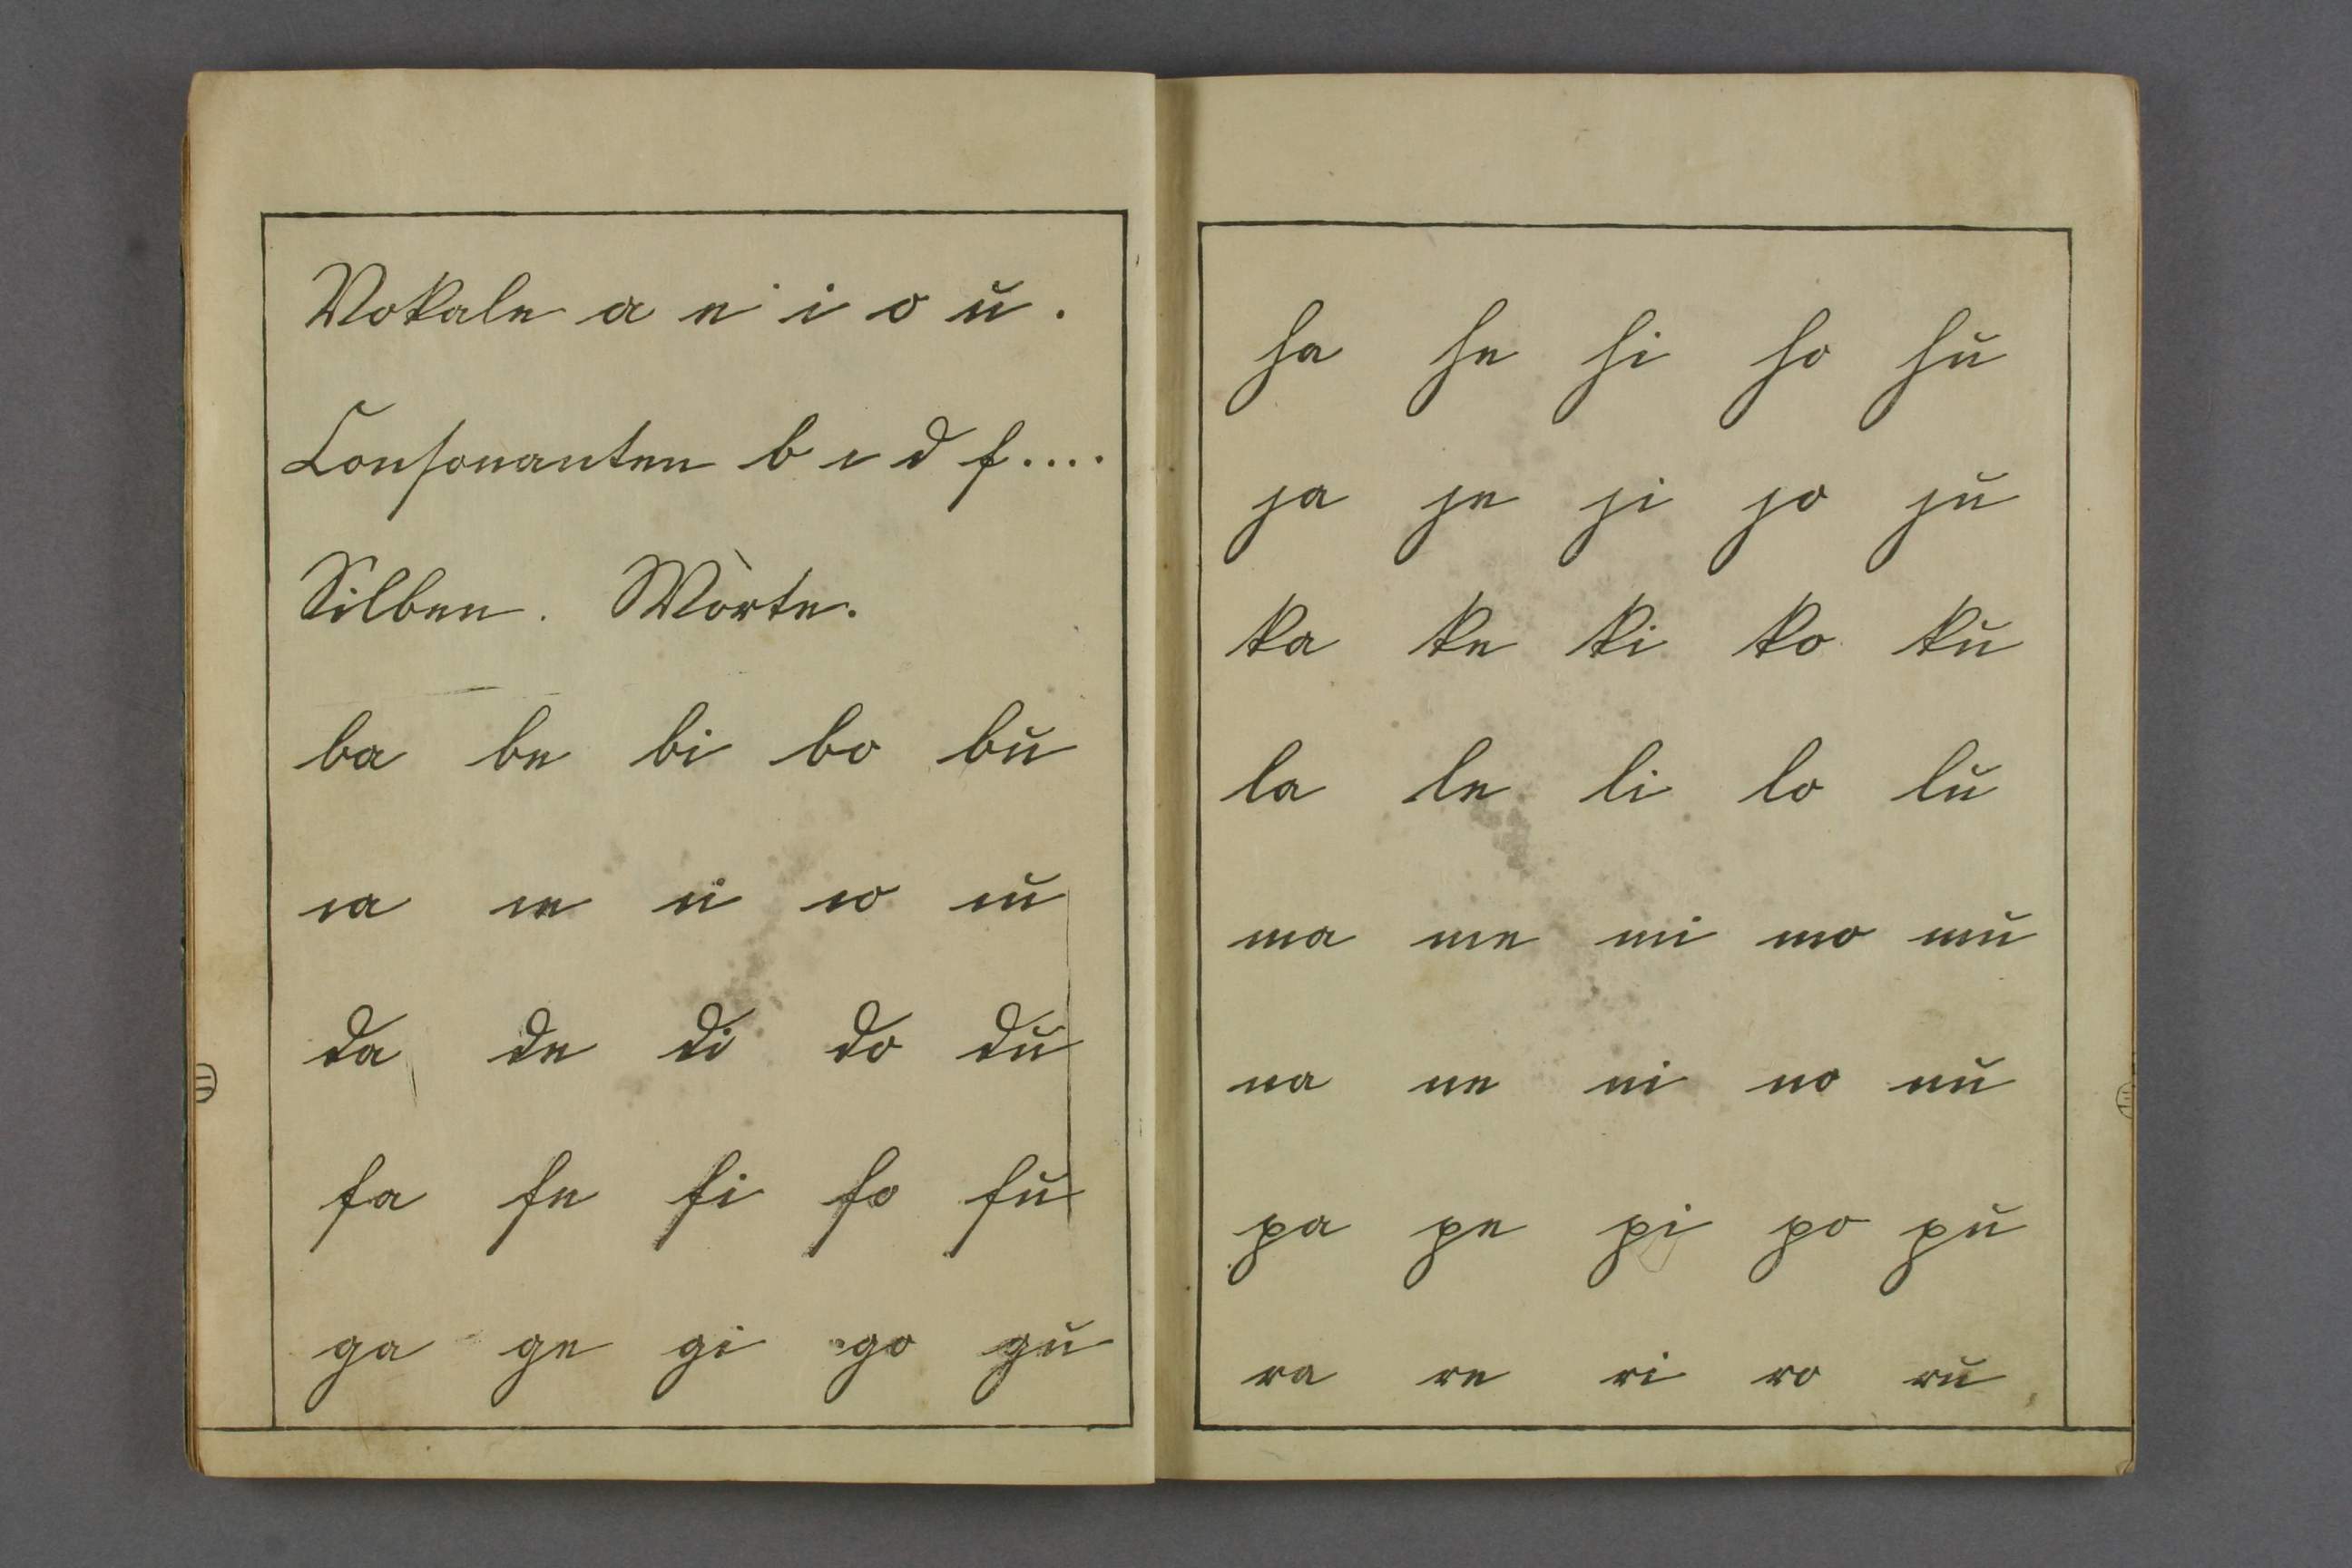 Vokale a e i o u.
Consonanten b c d f....
Silben. Wörte.
ba be bi bo bu
ca ce ci co cu
da de di do du
fa fe fi fo fu
ga ge gi go gu
ha he hi ho hu
ja je ji jo ju
ka ke ki ko ku
la le li lo lu
ma me mi mo mu
na ne ni no nu
pa pe pi po pu
ra re ri ro ru